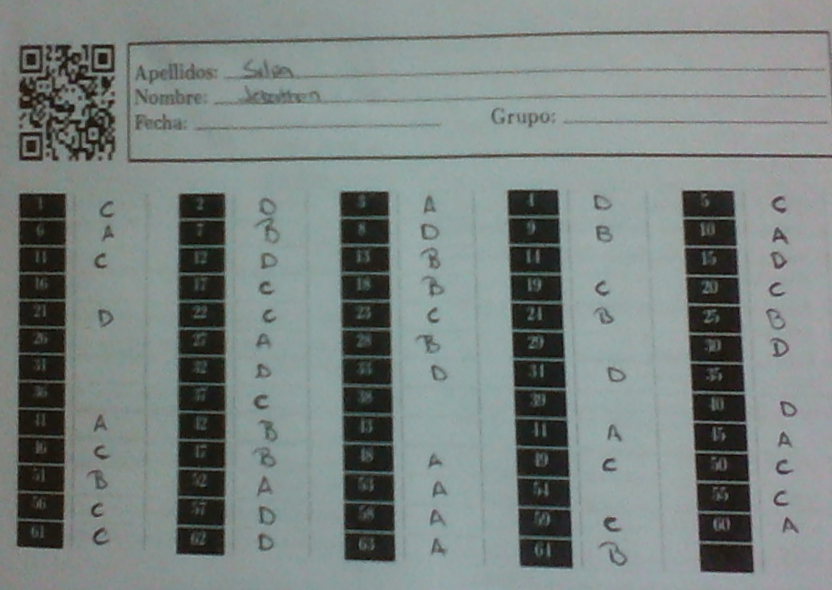 Apellidos: Silva
Nombre: Jonathan
Fecha: Grupo:
1 C 2 D 3 A 4 D 5 C
6 A 7 B 8 D 9 B 10 A
11 C 12 D 13 B 14 15 D
16 17 C 18 B 19 C 20 C
21 D 22 C 23 C 24 B 25 B
26 27 A 28 B 29 30 D
31 32 D 33 D 34 D 35
36 37 C 38 39 40 D
41 A 42 B 43 44 A 45 A
46 C 47 B 48 A 49 C 50 C
51 B 52 A 53 A 54 55 C
56 C 57 D 58 A 59 C 60 A
61 C 62 D 63 A 64 B